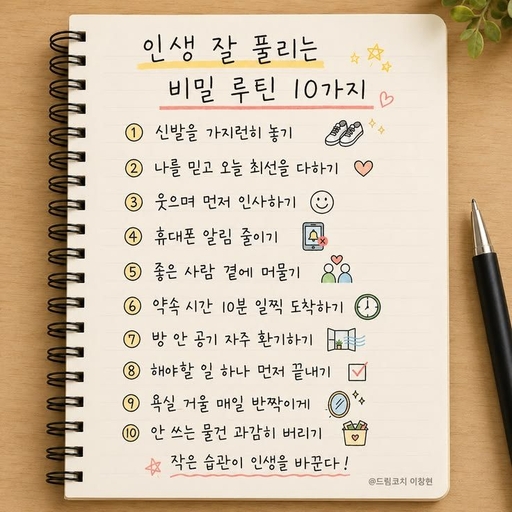 인생 잘 풀리는
비밀 루틴 10가지
① 신발을 가지런히 놓기
② 나를 믿고 오늘 최선을 다하기
③ 웃으며 먼저 인사하기
④ 휴대폰 알림 줄이기
⑤ 좋은 사람 곁에 머물기
⑥ 약속 시간 10분 일찍 도착하기
⑦ 방 안 공기 자주 환기하기
⑧ 해야할 일 하나 먼저 끝내기
⑨ 욕실 거울 매일 반짝이게
⑩ 안 쓰는 물건 과감히 버리기
작은 습관이 인생을 바꾼다!
@드림코치 이창현